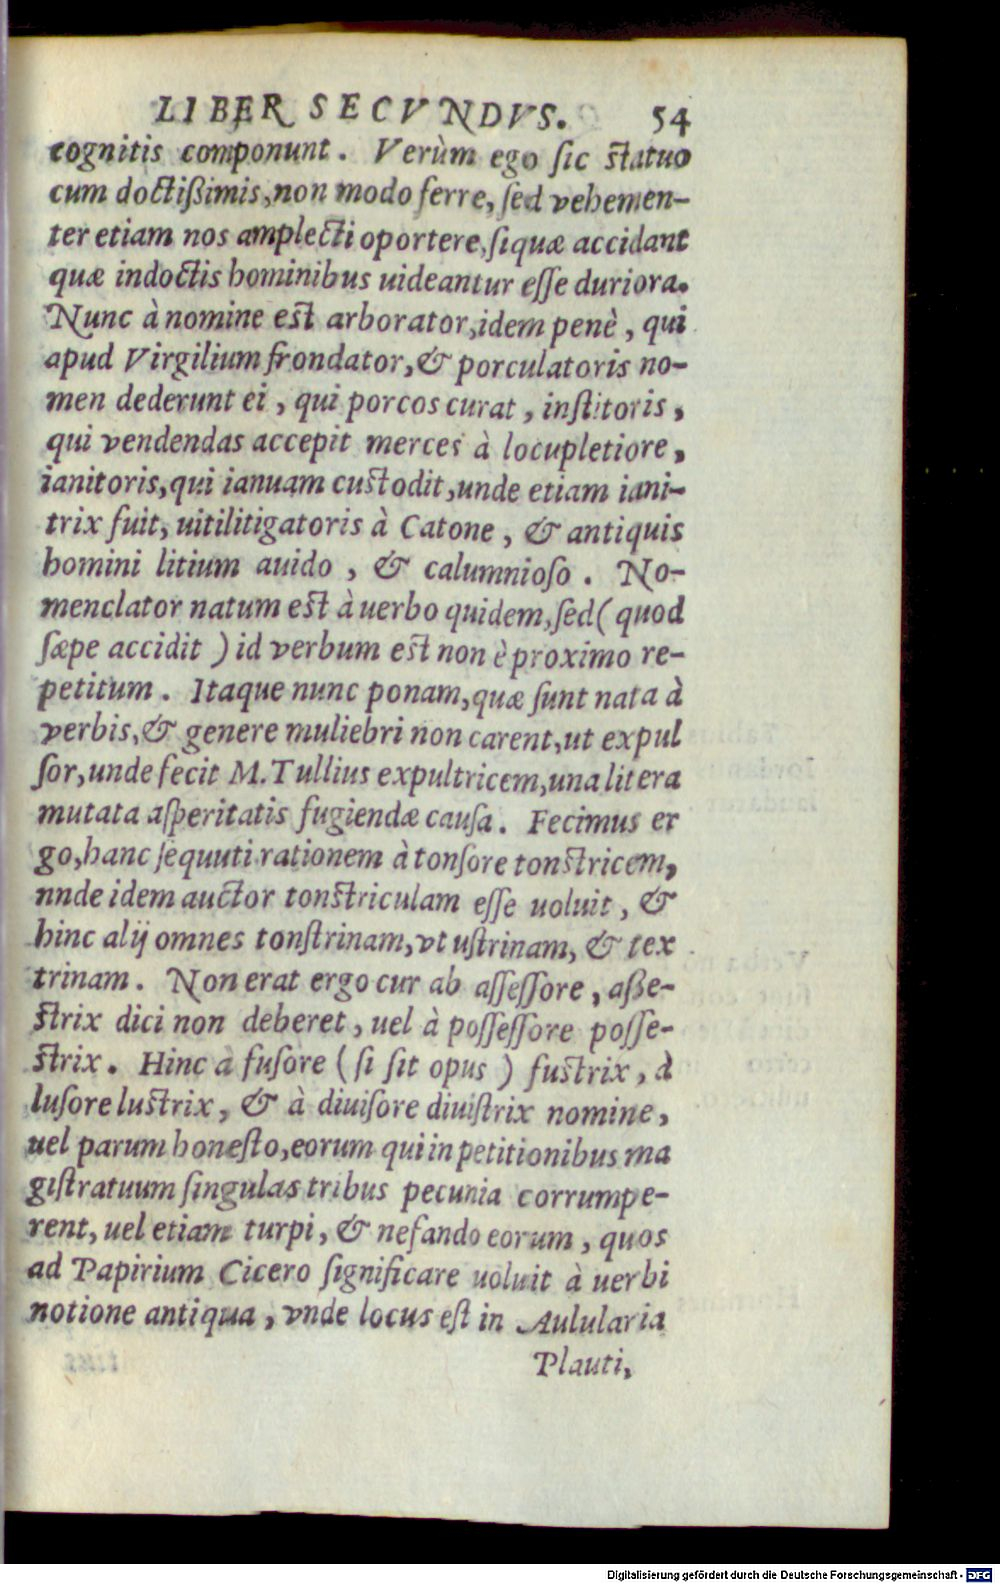 LIBER SECVNDVS. 54
cognitis componunt. Verùm ego sic statuo
cum doctißimis, non modo ferre, sed vehemen-
ter etiam nos amplecti oportere, siquæ accidant
quæ indoctis hominibus uideantur esse duriora.
Nunc à nomine est arborator, idem penè, qui
apud Virgilium frondator, & porculatoris no-
men dederunt ei, qui porcos curat, institoris,
qui vendendas accepit merces à locupletiore,
ianitoris, qui ianuam custodit, unde etiam iani-
trix fuit, uitilitigatoris à Catone, & antiquis
homini litium auido, & calumnioso. No-
menclator natum est à uerbo quidem, sed (quod
sæpe accidit) id verbum est non è proximo re-
petitum. Itaque nunc ponam, quæ sunt nata à
verbis, & genere muliebri non carent, ut expul
sor, unde fecit M. Tullius expultricem, una litera
mutata asperitatis fugiendæ causa. Fecimus er
go, hanc sequuti rationem à tonsore tonstricem,
nnde idem auctor tonstriculam esse uoluit, &
hinc alij omnes tonstrinam, vt ustrinam, & tex
trinam. Non erat ergo cur ab assessore, aßes-
strix dici non deberet, uel à possessore posse-
strix. Hinc à fusore (si sit opus) fustrix, à
lusore lustrix, & à diuisore diuistrix nomine,
uel parum honesto, eorum qui in petitionibus ma
gistratuum singulas tribus pecunia corrumpe-
rent, uel etiam turpi, & nefando eorum, quos
ad Papirium Cicero significare uoluit à uerbi
notione antiqua, vnde locus est in Aulularia
Plauti,
Digitalisierung gefördert durch die Deutsche Forschungsgemeinschaft - DFG